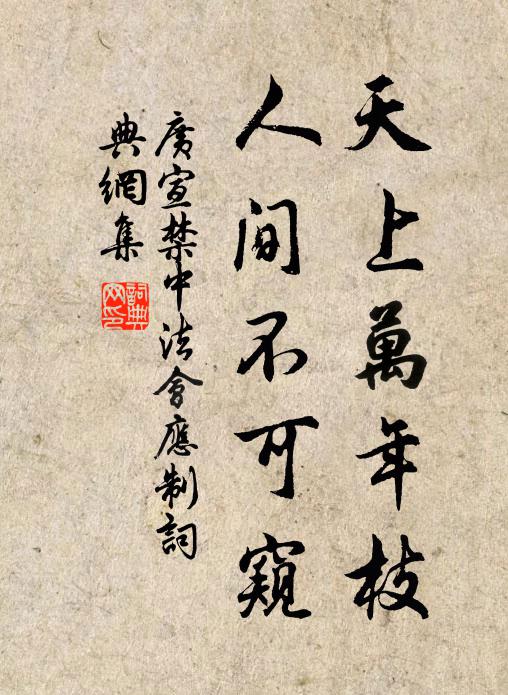 天上萬年枝
人間不可窺
廣宣禁中法會應制詞
典網集
詞典網印